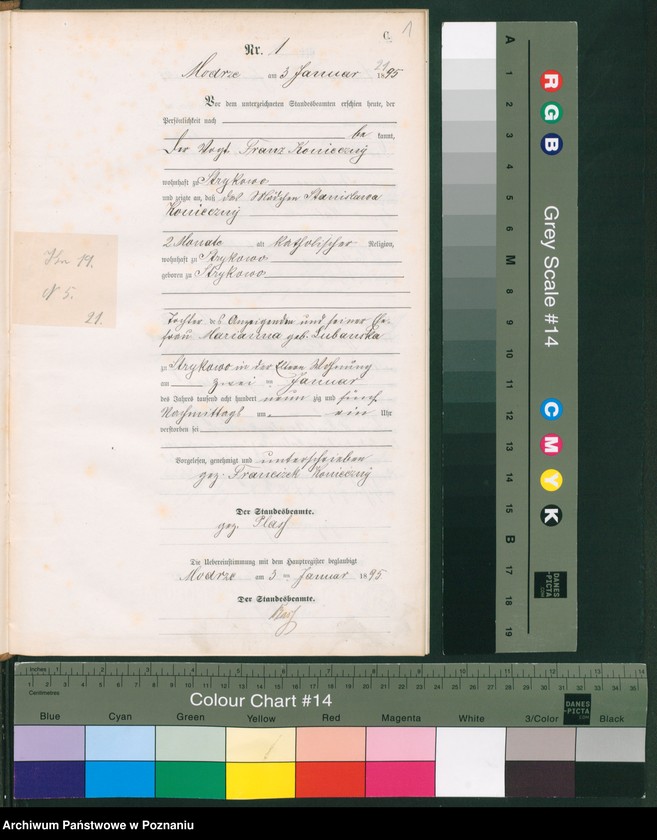 C. 1
Nr. 1
Modrze am 3 Januar 1895
Vor dem unterzeichneten Standesbeamten erschien heute, der
Persönlichkeit nach
be kannt,
Der Vogt Franz Konieczny
wohnhaft zu Strykowo
und zeigte an, daß das Mädchen Stanislawa
Konieczny
2 Monate alt katholischer Religion,
wohnhaft zu Strykowo
geboren zu Strykowo
Tochter des Anzeigenden und seiner Ehe-
frau Marianna geb. Lubawska
zu Strykowo in der Eltern Wohnung
am zwei ten Januar
des Jahres tausend acht hundert neun zig und fünf
Nachmittags um ein Uhr
verstorben sei
Vorgelesen, genehmigt und unterschrieben
gez. Franciszek Konieczny
Der Standesbeamte.
gez.
Die Uebereinstimmung mit dem Hauptregister beglaubigt
Modrze am 3 ten Januar 1895.
Der Standesbeamte.
N 5.
21.
A 1 2 3 4 5 6 M 8 9 10 11 12 13 14 15 B 17 18 19
R G B
Grey Scale #14
C M Y K
DANES
-PICTA
.COM
inches 1 2 3 4 5 6 7 8 9 10 11 12 13 14
1 2 3 4 5 6 7 8 9 10 11 12 13 14 15 16 17 18 19 20 21 22 23 24 25 26 27 28 29 30 31 32 33 34 35
Centimetres
Colour Chart #14
DANES
-PICTA
.COM
Blue Cyan Green Yellow Red Magenta White 3/Color Black
Archiwum Państwowe w Poznaniu